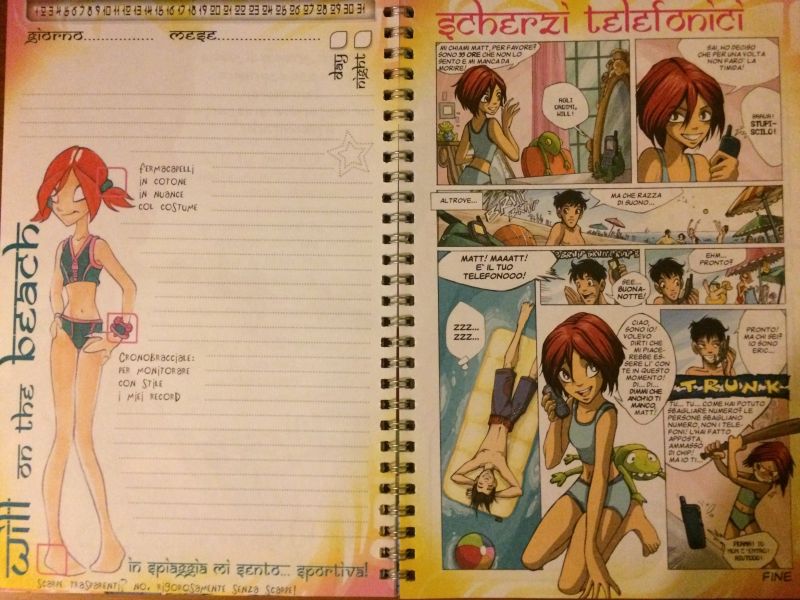 1 2 3 4 5 6 7 8 9 10 11 12 13 14 15 16 17 18 19 20 21 22 23 24 25 26 27 28 29 30 31
giorno................ mese......................
day
night
fermacapelli
in cotone
in nuance
col costume
Cronobracciale:
per monitorare
con stile
i miei record
Will on the beach
in spiaggia mi sento... sportiva!
scarpe trasparenti? no, rigorosamente senza scarpe!
scherzi telefonici
MI CHIAMI MATT, PER FAVORE?
SONO 39 ORE CHE NON LO
SENTO E MI MANCA DA
MORIRE!
AGLI
ORDINI,
WILL!
SAI, HO DECISO
CHE PER UNA VOLTA
NON FARO' LA
TIMIDA!
BRAVA!
STUPI-
SCILO!
ALTROVE...
MA CHE RAZZA
DI SUONO...
MATT! MAAATT!
E' IL TUO
TELEFONOOO!
SEE...
BUONA-
NOTTE!
EHM...
PRONTO?
ZZZ...
ZZZ...
CIAO,
SONO IO!
VOLEVO
DIRTI CHE
MI PIACE-
REBBE ES-
SERE LI' CON
TE IN QUESTO
MOMENTO!
DI... DI...
DIMMI CHE
ANCH'IO TI
MANCO,
MATT!
PRONTO!
MA CHI SEI?
IO SONO
ERIC...
T-R-U-N-K
TU... TU... COME HAI POTUTO
SBAGLIARE NUMERO? LE
PERSONE SBAGLIANO
NUMERO, NON I TELE-
FONI! L'HAI FATTO
APPOSTA,
AMMASSO
DI CHIP!
MA IO TI...
FERMA! IO
NON C'ENTRO!
AIUTOOO!
FINE